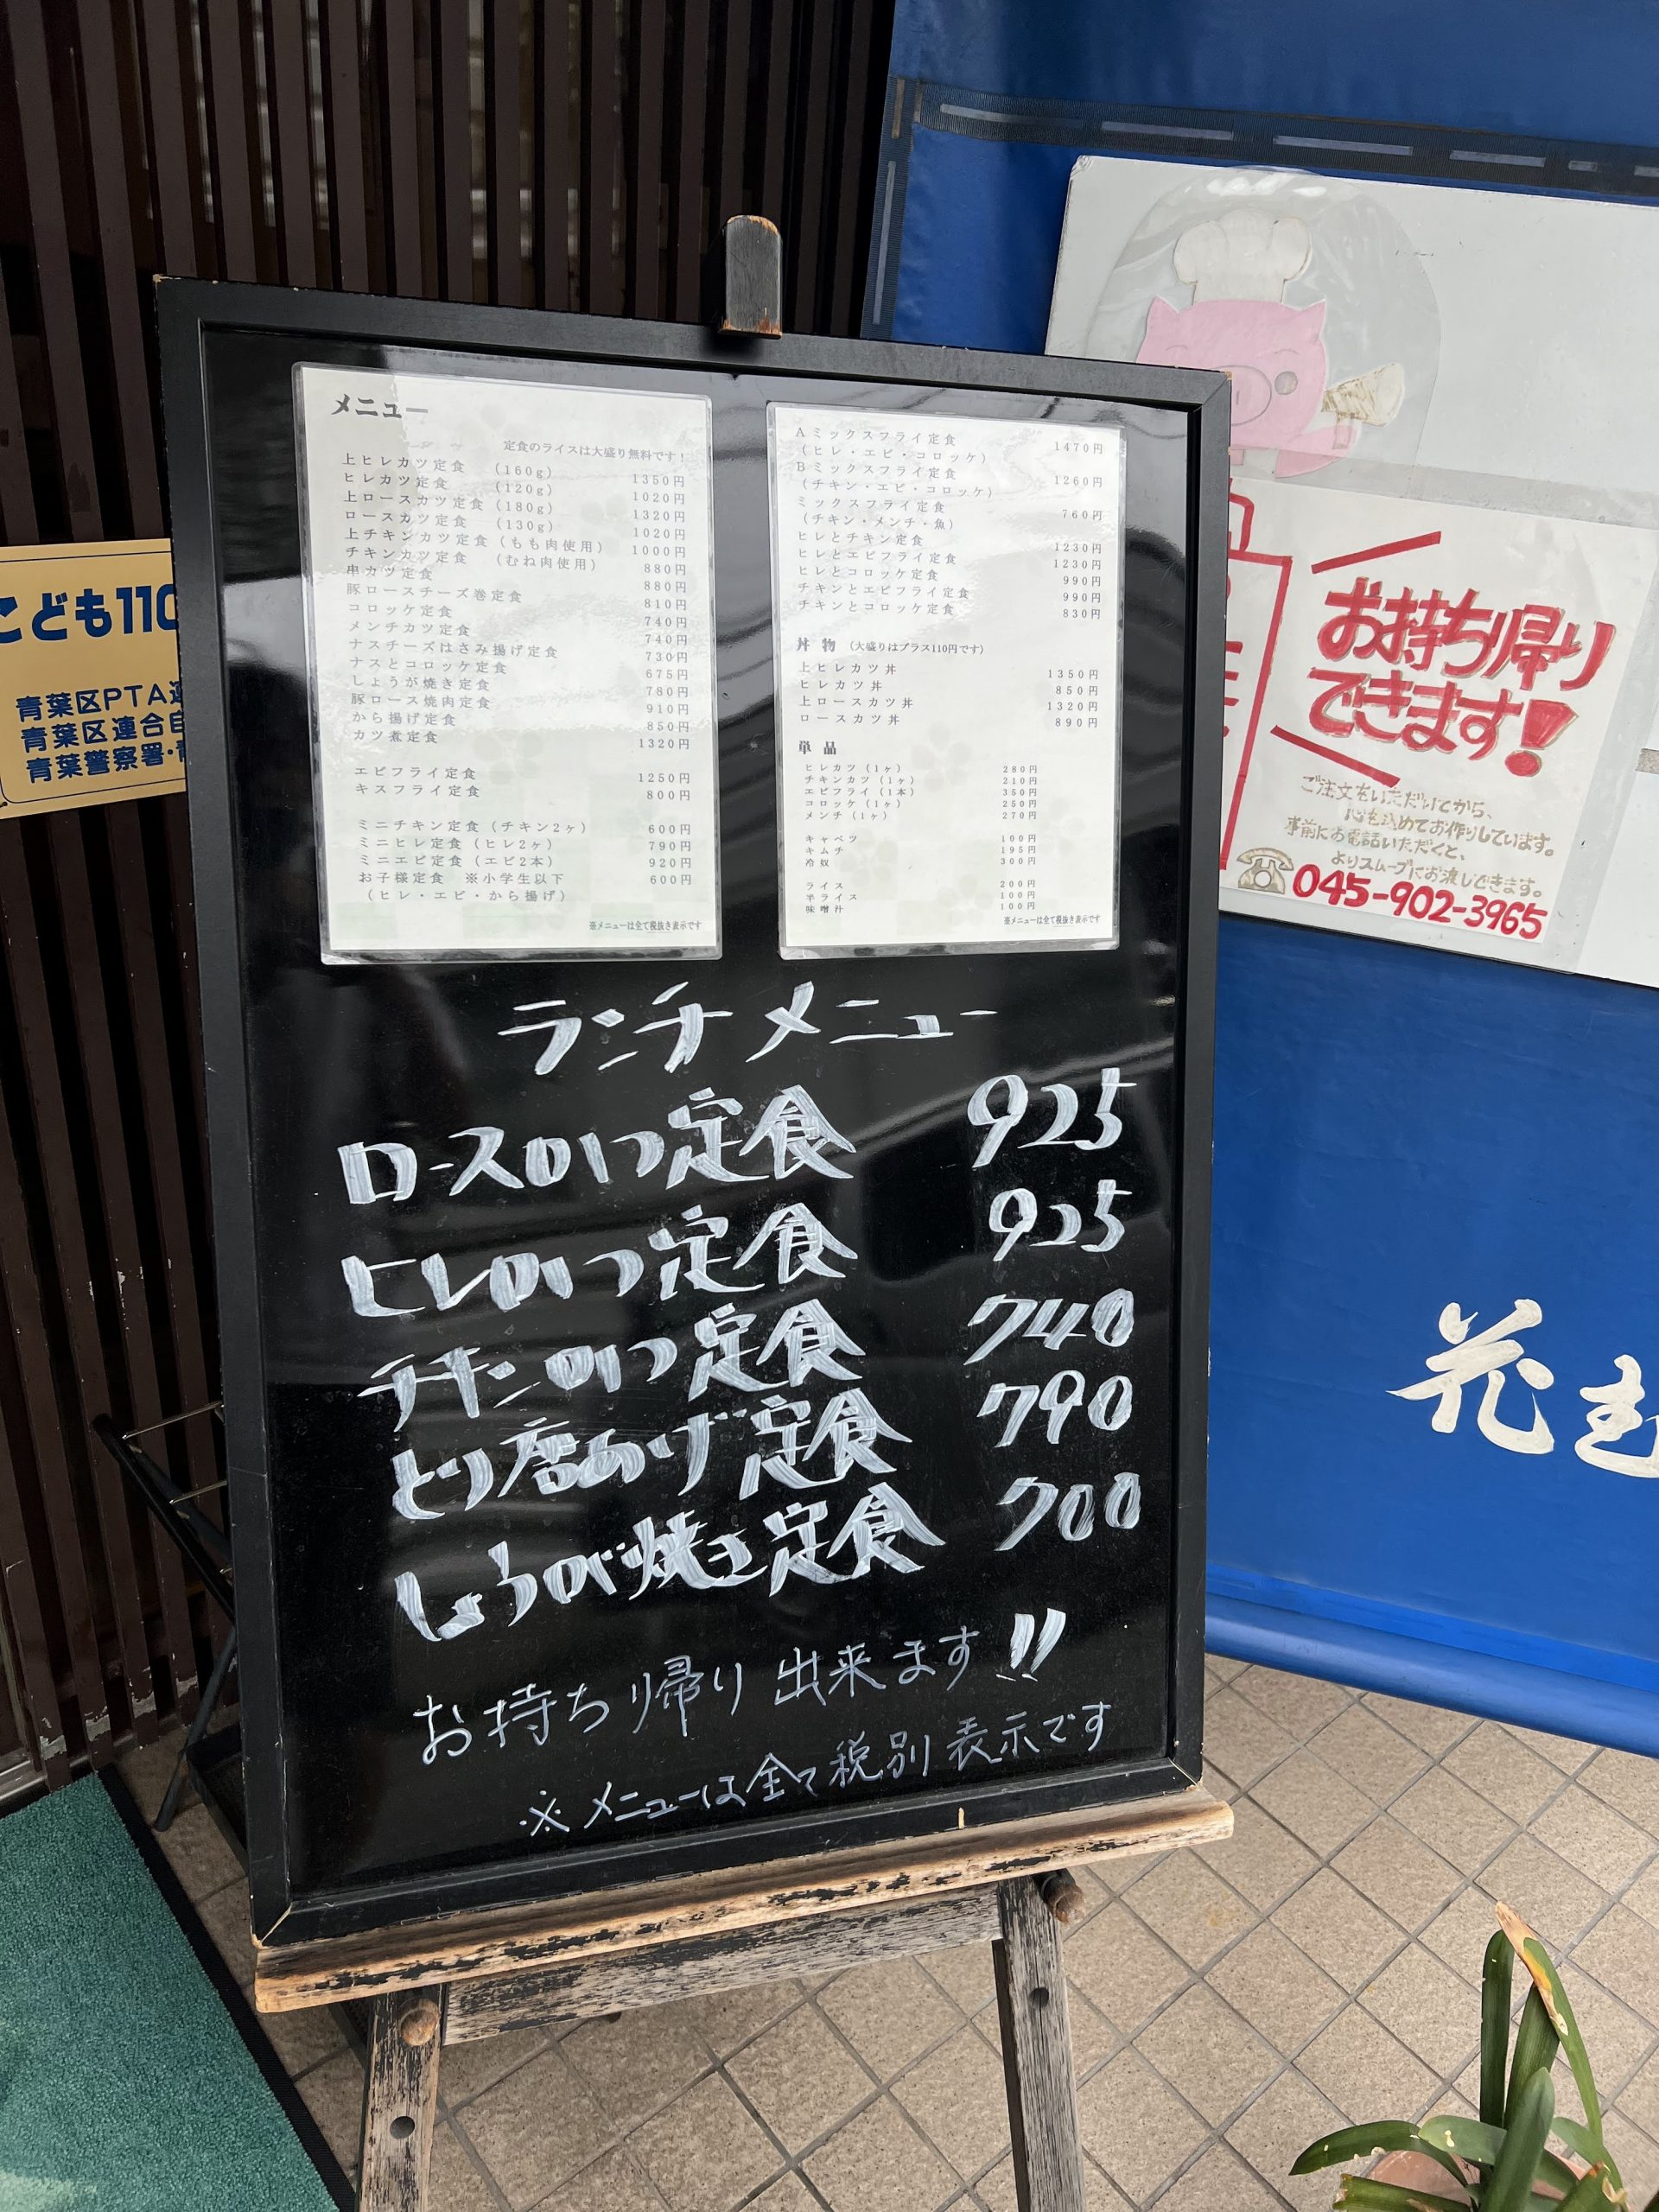 メニュー
定食のライスは大盛り無料です！
上ヒレカツ定食 （160g） 1350円
ヒレカツ定食 （120g） 1020円
上ロースカツ定食（180g） 1320円
ロースカツ定食 （130g） 1020円
上チキンカツ定食（もも肉使用） 1000円
チキンカツ定食 （むね肉使用） 880円
串カツ定食 880円
豚ロースチーズ巻定食 810円
コロッケ定食 740円
メンチカツ定食 740円
ナスチーズはさみ揚げ定食 730円
ナスとコロッケ定食 675円
しょうが焼き定食 780円
豚ロース焼肉定食 910円
から揚げ定食 850円
カツ煮定食 1320円
エビフライ定食 1250円
キスフライ定食 800円
ミニチキン定食（チキン2ヶ） 600円
ミニヒレ定食（ヒレ2ヶ） 790円
ミニエビ定食（エビ2本） 920円
お子様定食 ※小学生以下 600円
（ヒレ・エビ・から揚げ）
※メニューは全て税抜き表示です
Aミックスフライ定食 1470円
（ヒレ・エビ・コロッケ）
Bミックスフライ定食 1260円
（チキン・エビ・コロッケ）
ミックスフライ定食 760円
（チキン・メンチ・魚）
ヒレとチキン定食 1230円
ヒレとエビフライ定食 1230円
ヒレとコロッケ定食 990円
チキンとエビフライ定食 990円
チキンとコロッケ定食 830円
丼物 （大盛りはプラス110円です）
上ヒレカツ丼 1350円
ヒレカツ丼 850円
上ロースカツ丼 1320円
ロースカツ丼 890円
単品
ヒレカツ（1ヶ） 280円
チキンカツ（1ヶ） 210円
エビフライ（1本） 350円
コロッケ（1ヶ） 250円
メンチ（1ヶ） 270円
キャベツ 160円
キムチ 195円
冷奴 300円
ライス 200円
半ライス 100円
味噌汁 100円
※メニューは全て税抜き表示です
ランチメニュー
ロースかつ定食 925
ヒレかつ定食 925
チキンかつ定食 740
とり唐あげ定食 790
しょうが焼き定食 700
お持ち帰り出来ます!!
※メニューは全て税別表示です
こども110
青葉区PTA連
青葉区連合自
青葉警察署・
お持ち帰り
できます!
ご注文をいただいてから、
心を込めてお作りしています。
事前にお電話いただくと、
よりスムーズにお渡しできます。
045-902-3965
花